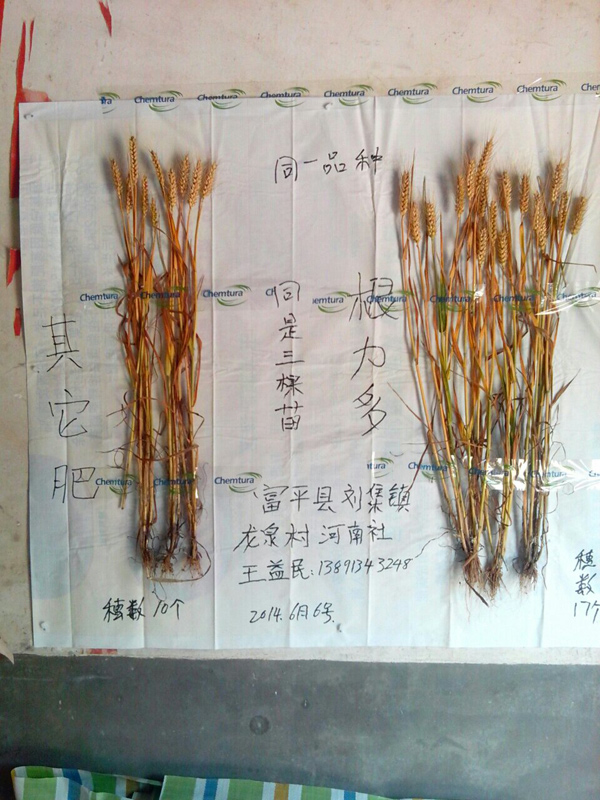 Chemtura Chemtura Chemtura Chemtura Chemtura Chemtura
同一品种
Chemtura Chemtura Chemtura
其它肥
同是三棵苗
根力多
Chemtura Chemtura Chemtura
富平县刘集镇
龙泉村河南社
王益民:13891343248
穗数10个
2014.6月6号.
穗数17个